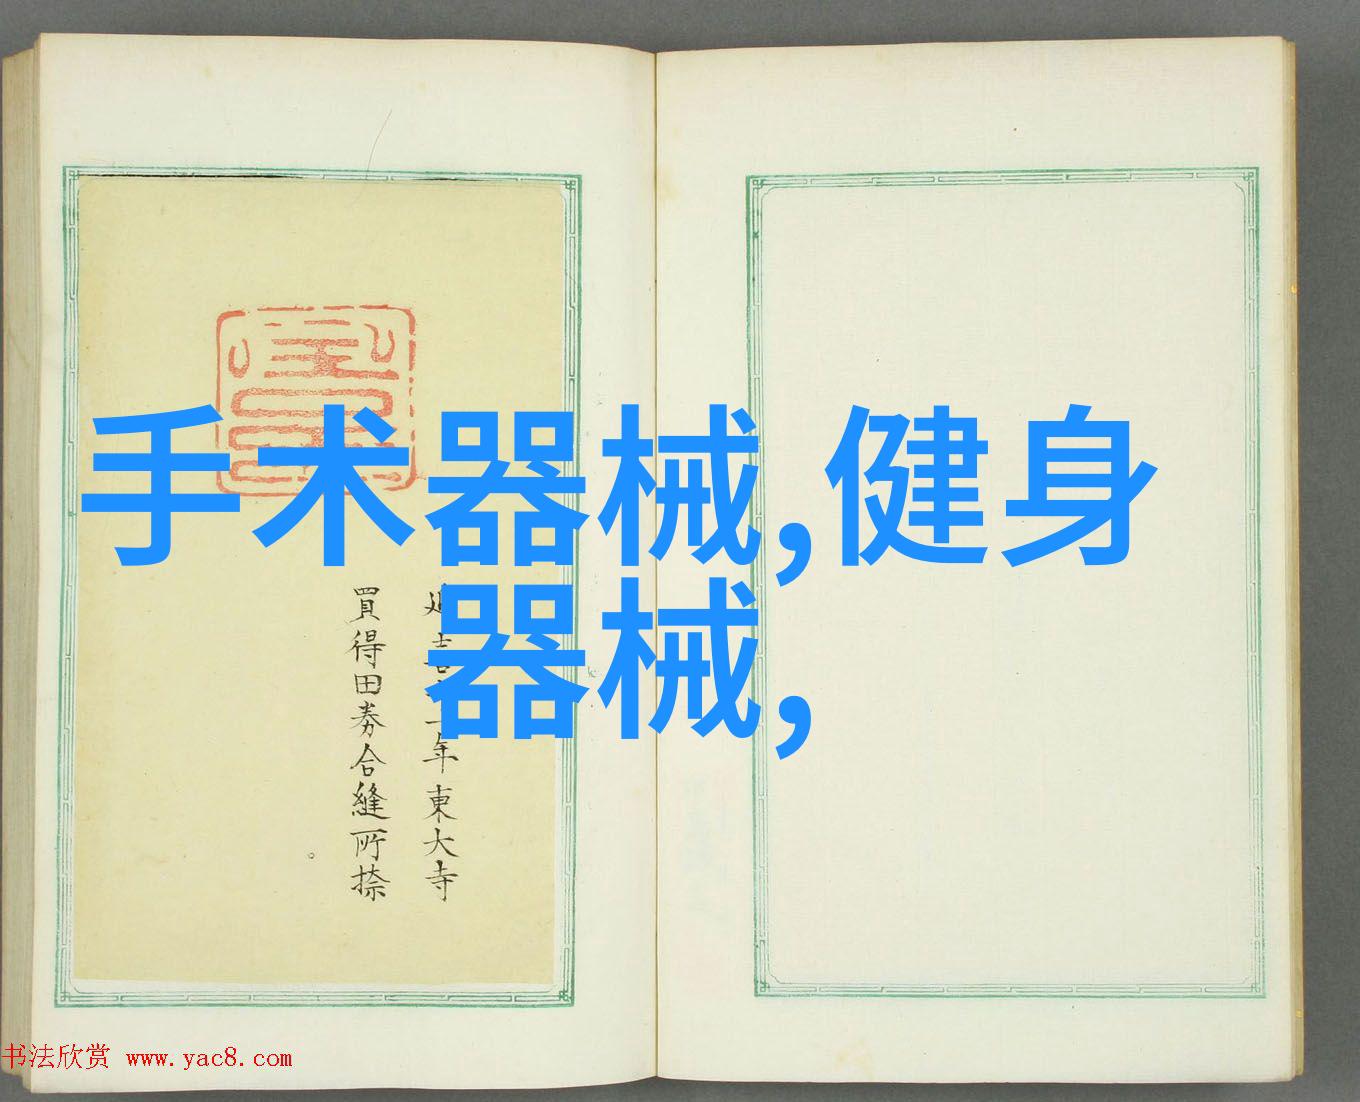 手术器械,健身
器械,
延喜十一年東大寺
買得田券合縫所捺
书法欣赏 www.yac8.com